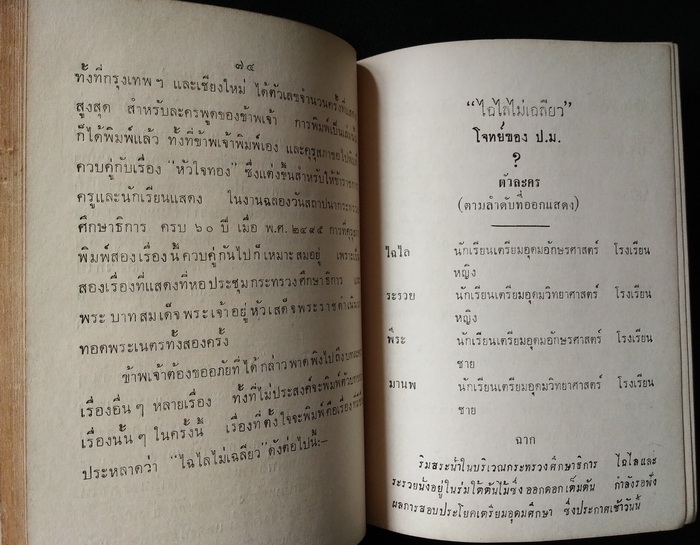 ๗๔
ทั้งที่กรุงเทพฯ และเชียงใหม่ ได้ตัวเลขจำนวนครั้งที่แสดง
สูงสุด สำหรับละครพูดของข้าพเจ้า การพิมพ์เป็นเล่ม
ก็ได้พิมพ์แล้ว ทั้งที่ข้าพเจ้าพิมพ์เอง และคุรุสภาขอไปพิมพ์
ควบคู่กับเรื่อง “หัวใจทอง” ซึ่งแต่งขึ้นสำหรับให้ข้าราชการ
ครูและนักเรียนแสดง ในงานฉลองวันสถาปนากระทรวง
ศึกษาธิการ ครบ ๖๐ ปี เมื่อ พ.ศ. ๒๔๙๕ การที่คุรุสภา
พิมพ์สองเรื่องนี้ควบคู่กันไปก็เหมาะสมอยู่ เพราะเป็น
สองเรื่องที่แสดงที่หอประชุมกระทรวงศึกษาธิการ และ
พระบาทสมเด็จพระเจ้าอยู่หัวเสด็จพระราชดำเนิน
ทอดพระเนตรทั้งสองครั้ง
ข้าพเจ้าต้องขออภัยที่ได้กล่าวพาดพิงไปถึงบทละคร
เรื่องอื่นๆ หลายเรื่อง ทั้งที่ไม่ประสงค์จะพิมพ์
เรื่องนั้นๆ ในครั้งนี้ เรื่องที่ตั้งใจจะพิมพ์คือเรื่อง
ประหลาดว่า “ไฉไลไม่เฉลียว” ดังต่อไปนี้:–
“ไฉไลไม่เฉลียว”
โจทย์ของ ป.ม.
?
ตัวละคร
(ตามลำดับที่ออกแสดง)
ไฉไล นักเรียนเตรียมอุดมอักษรศาสตร์ โรงเรียน
หญิง
ระรวย นักเรียนเตรียมอุดมวิทยาศาสตร์ โรงเรียน
หญิง
พีระ นักเรียนเตรียมอุดมอักษรศาสตร์ โรงเรียน
ชาย
มานพ นักเรียนเตรียมอุดมวิทยาศาสตร์ โรงเรียน
ชาย
ฉาก
ริมสระน้ำในบริเวณกระทรวงศึกษาธิการ ไฉไลและ
ระรวยนั่งอยู่ในร่มใต้ต้นไม้ซึ่งออกดอกเต็มต้น กำลังรอฟัง
ผลการสอบประโยคเตรียมอุดมศึกษา ซึ่งประกาศเช้าวันนี้